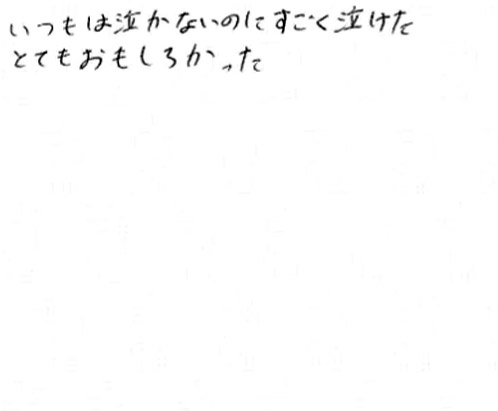 いつもは泣かないのにすごく泣けた
とてもおもしろかった